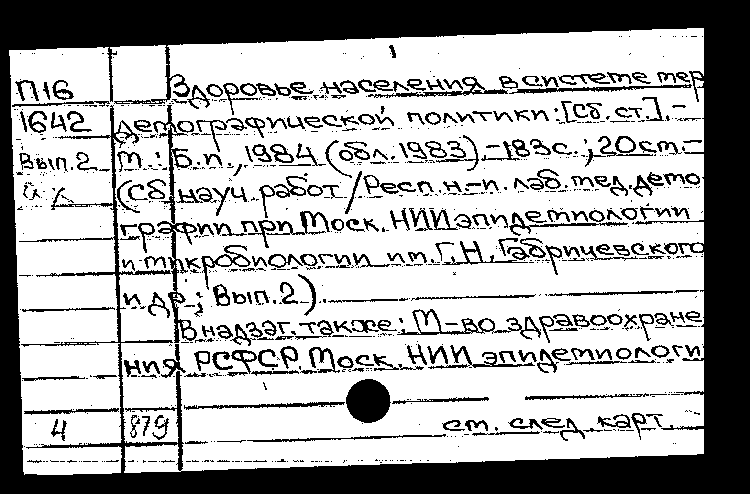 1
П16 Здоровье населения в системе мер
1642 демографической политики: [Сб. ст.]. –
Вып.2 М.: Б.и., 1984 (обл. 1983). – 183с.; 20см. –
(Сб. науч. работ / Респ. н.-и. лаб. мед. демо
графии при Моск. НИИ эпидемиологии
и микробиологии им. Г.Н. Габричевского
и др.; Вып.2).
В надзаг. также: М-во здравоохране
ния РСФСР, Моск. НИИ эпидемиологи
4 879 см. след. карт.